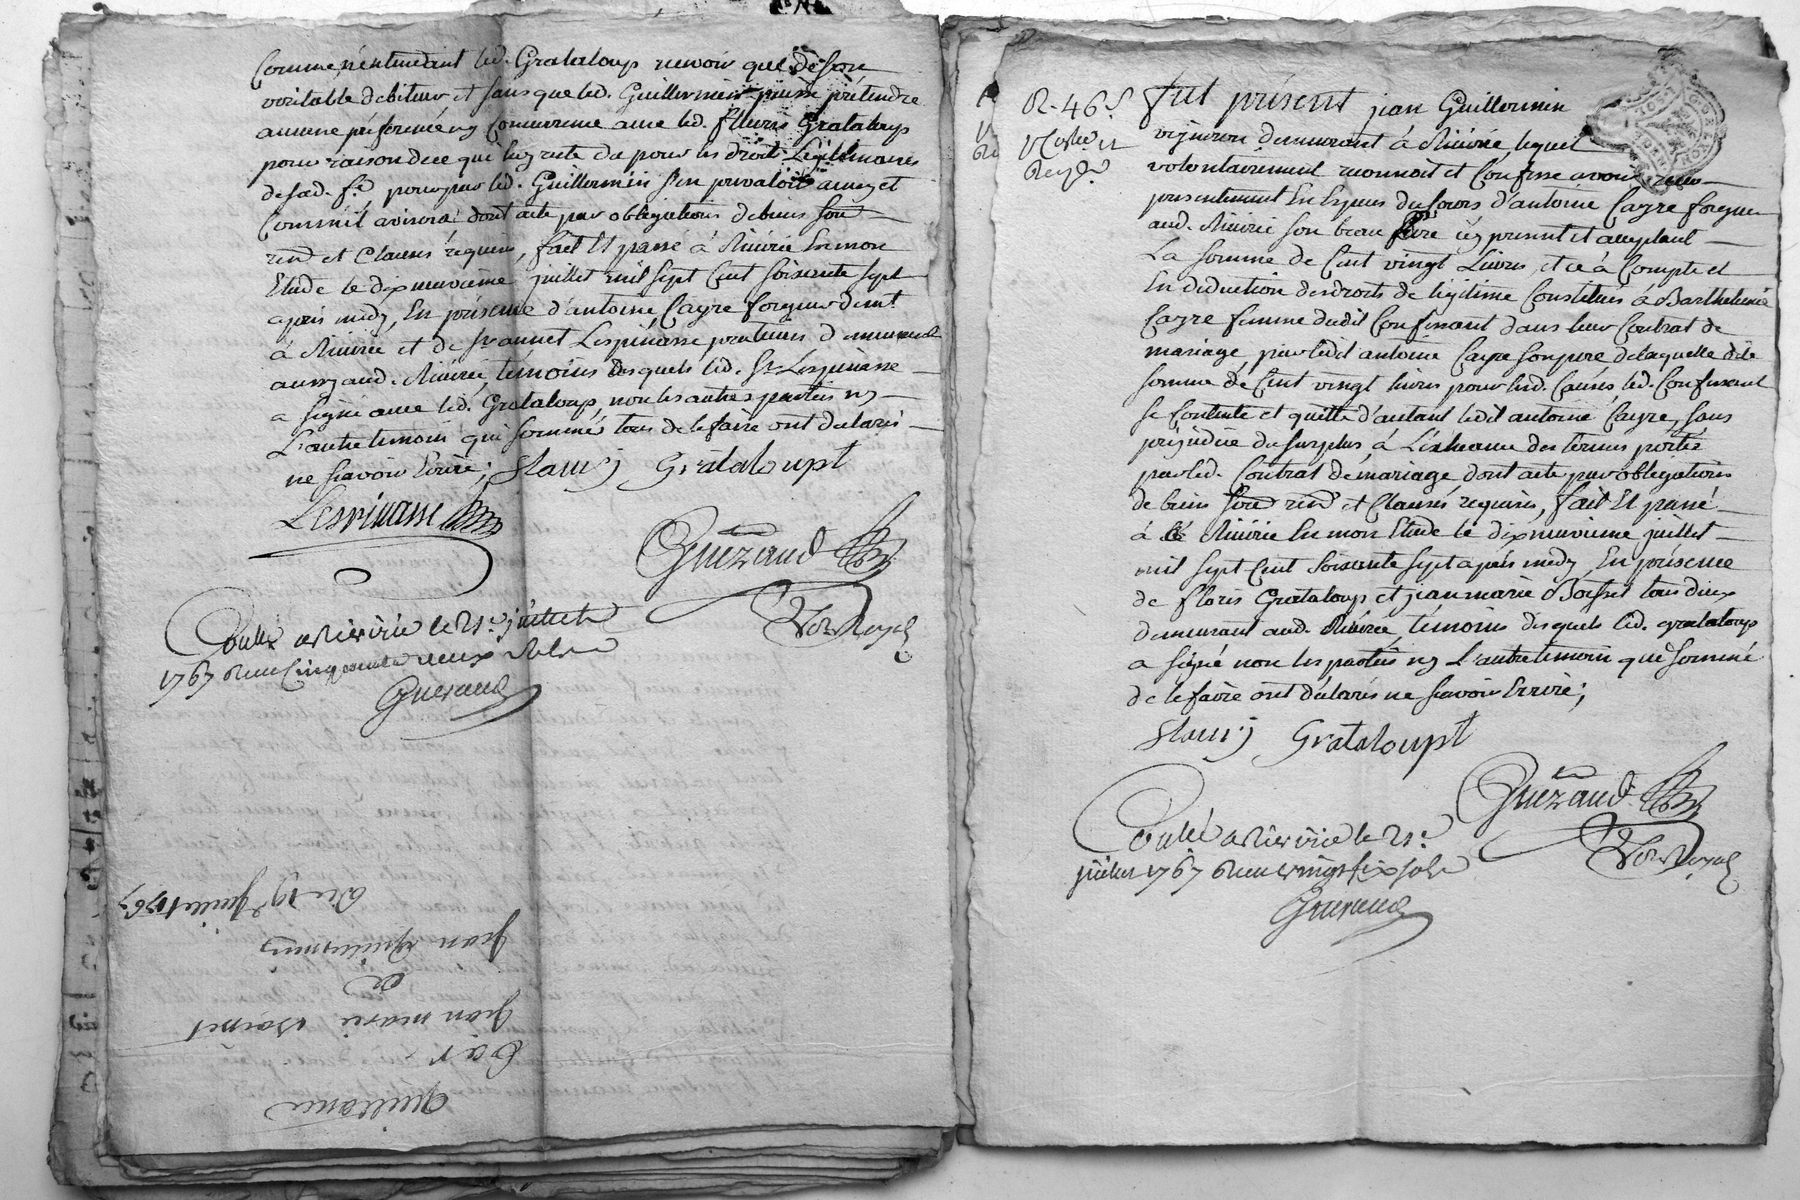 Comme n'entendant led. Grataloup renvoir que de son
veritable debiteur et sans que led. Guillermin puisse prétendre
aucune préférence ny Concurrence avec led. fleuris Grataloup
pour raison de ce qui luy reste du pour les droits Légitimaires
de sad. fe. pour par led. Guillermin s'en prevaloir ainsy et
Comm'il avisera dont acte par obligations de biens soum
renon et Clauses requises, fait Et passé à Riverie En mon
Etude le dix neuvieme juillet mil sept Cent soixante sept
apres midy, En présence d'antoine Cayre forgeur demt
à Riverie et de Sr annet Lespinasse praticien demeurant
aussy aud. Riverie, témoins desquels led. Sr Lespinasse
a signé avec led. Grataloup, non les autres parties ny
L'autre temoin qui sommés tous de le faire ont déclaré
ne sçavoir Ecrire;
flaurj Grataloupt
Lespinasse
Guerand
Nore Royal
Conllé a Riverie le 21e juillet
1767 Recu Cinquante deux sols
Guerand
Du 19e Juillet 1767
jean Guillermin
à
jean marie Boisset
Par
Quittance
R. 46 s.
fut présent jean Guillermin
vigneron demeurant à Riverie lequel
volontairement reconnoit et Confesse avoir reçu
presentement En Espèces du Cours d'antoine Cayre forgeur
aud. Riverie son beau père icy present et acceptant
La somme de Cent vingt Livres, et ce à Compte et
En deduction des droits de legitime Constitués à Barthelemie
Cayre femme dudit Confessant dans leur Contrat de
mariage, par ledit antoine Cayre son pere de laquelle dite
somme de Cent vingt livres pour lesd. Causes led. Confessant
se Contente et quitte d'autant ledit antoine Cayre, sans
préjudice du surplus à L'echeance des termes portés
par led. Contrat de mariage, dont acte par obligations
de biens soum renon et Clauses requises, fait Et passé
à Riverie En mon Etude le dix neuvieme juillet
mil sept Cent soixante sept après midy En présence
de floris Grataloup et jean marie Boisset tous deux
demeurant aud. Riverie, témoins desquels led. grataloup
a signé non les parties ny L'autre temoin que sommé
de le faire ont déclarés ne sçavoir Ecrire;
flaurj Grataloupt
Guerand
Nore Royal
Conllé a Riverie le 21e
juillet 1767 Recu vingt six sols
Guerand